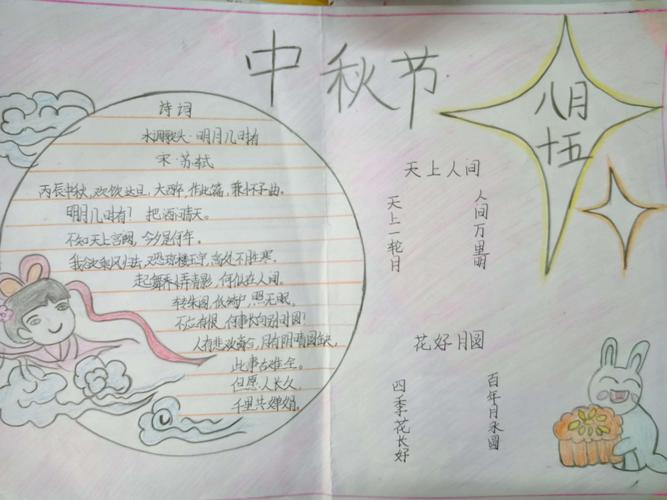 中秋节
八月
十五
诗词
水调歌头·明月几时有
宋·苏轼
丙辰中秋，欢饮达旦，大醉，作此篇，兼怀子由。
明月几时有？把酒问青天。
不知天上宫阙，今夕是何年。
我欲乘风归去，又恐琼楼玉宇，高处不胜寒。
起舞弄清影，何似在人间。
转朱阁，低绮户，照无眠。
不应有恨，何事长向别时圆？
人有悲欢离合，月有阴晴圆缺，
此事古难全。
但愿人长久，
千里共婵娟。
天上人间
人间万里明
天上一轮月
花好月圆
百年月永圆
四季花长好